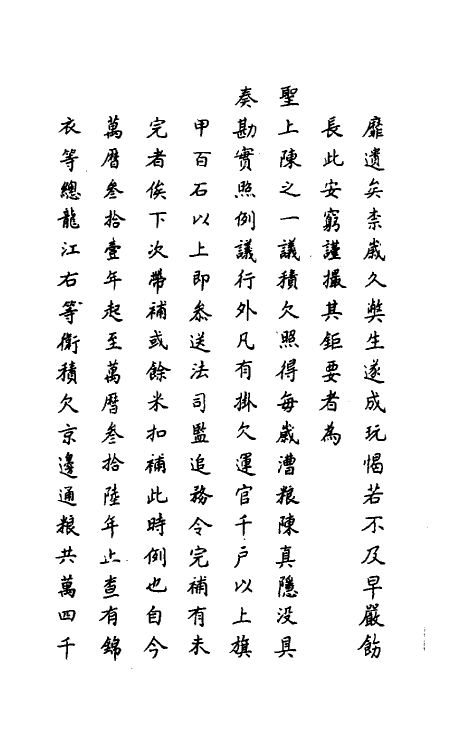 靡遺矣柰歲久獘生遂成玩愒若不及早嚴飭
長此安窮謹撮其鉅要者為
聖上陳之一議積欠照得每歲漕粮陳真隱没具
奏勘實照例議行外凡有掛欠運官千戶以上旗
甲百石以上即叅送法司監追務令完補有未
完者俟下次帶補或餘米扣補此時例也自今
萬曆叁拾壹年起至萬曆叁拾陸年止查有錦
衣等總龍江右等衛積欠京邊通粮共萬四千